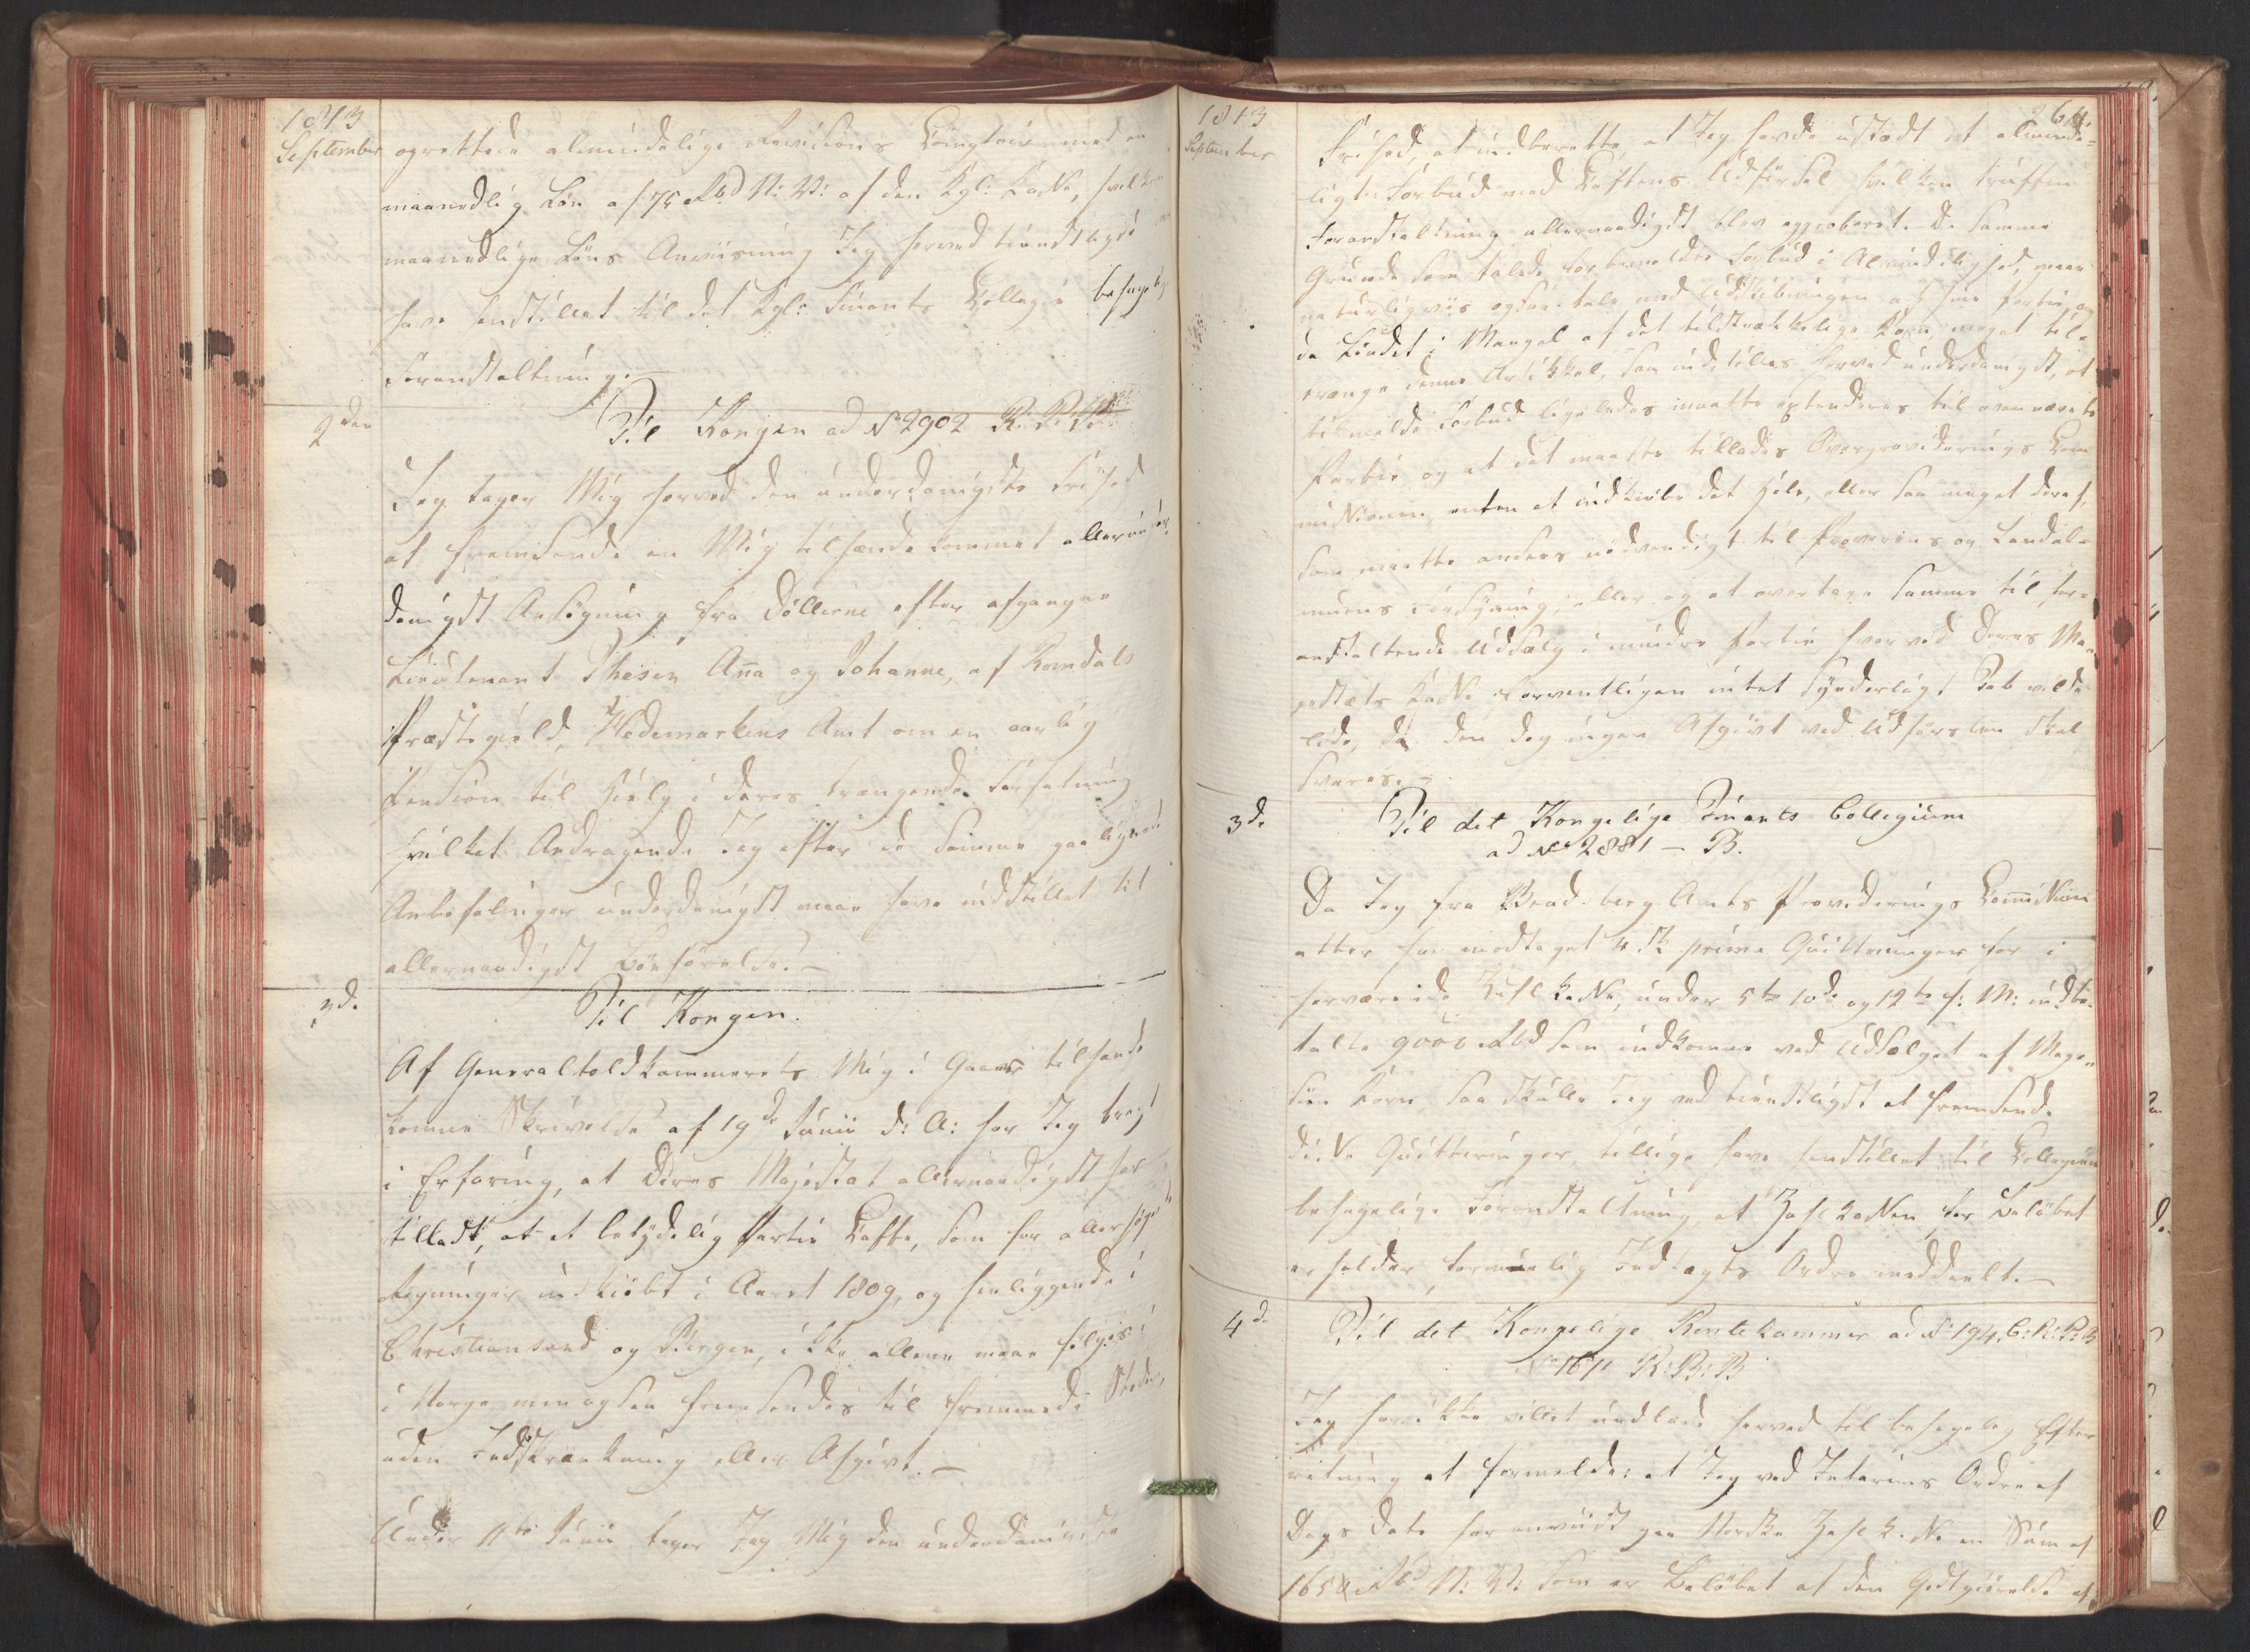 1813
September
oprettede almindelige Revisions Comptoir med en
maanedlig Løn af 75 Rbd N: V: af den Kgl: Kasse, hvilken
maanedlige Løns Anviisning Jeg herved tienstligst
have henstillet til det Kgl: Finants Collegie behagelig
Foranstaltning.
2den
Til Kongen ad No 2902
Jeg tager Mig herved den underdanigste Friehed
at fremsende en Mig tilhænde kommet allerun-
danigst Ansøgning fra Døttrene efter afgangne
Lieutenant Thesen Anna og Johanne, af Romdals
Præstegield, Hedemarkens Amt om en aarlig
Pension til Hielp i deres trængende Forfatning
hvilket Andragende Jeg efter de samme paategnede
Anbefalinger underdanigst maae have indstillet til
allernaadigst Bønhørelse.
2d.
Til Kongen.
Af Generaltoldkammerets Mig i Gaar tilhænde
komne Skrivelse af 19de Junii d: A: har Jeg bragt
i Erfaring, at Deres Majestæt allernaadigst har
tilladt, at et betydelig Partie Caffe, som for allerhøieste
Regninger indkiøbt i Aaret 1809, og henliggende i
Christiansand og Bergen, ikke allene maae sælges
i Norge men ogsaa fremsendes til fremmede Steder,
uden Indskrænkning eller Afgivt.
Under 11te Junii tager Jeg Mig den underdanigste
1813
September
264.
Friehed, at indberette, at Jeg havde udstædt et alminde-
ligt Forbud mod Caffens Udførsel hvilken trufne
Foranstaltning allernaadigst blev approberet. De samme
Grunde som talede for bemeldte Forbud i Almindelighed, maae
naturligviis ogsaa tale mod Udskibningen af hine Partie, og
da Landet i Mangel af det tilstrækkelige Korn meget til-
trænge denne Artikkel, saa indstilles herved underdanigst, at
bemeldte Forbud ligeledes maatte extenderes til ovennævnte
Partie, og at det maatte tillades Overprovideerings Com
missionen enten at indkiøbe det Hele, eller saa meget deraf,
som maatte ansees nødvendigt til Provisions og Landal-
muens Forsyning, eller og at overtage samme til for-
anstaltende Udsalg i mindre Partie hvorved Deres Ma-
jestæts Kasse formentligen intet synderligt Tab vilde
lide, da den dog ingen Afgivt ved Udførslen skal
svares.
3d.
Til det Kongelige Finants Collegium
ad No 2881 — B.
Da Jeg fra Bradsberg Amts Provideerings Commission
atter har modtaget 4 St. prima Qvitteringer for i
herværende Zahlkasse, under 5te 10de og 12te f: M: indbe-
talte 9000 Rbd som indkomne ved Udsalget af Maga-
sin Korn, saa skulle Jeg ved tienstligst at fremsende
disse Qvitteringer, tillige have henstillet til Collegiets
behagelige Foranstaltning, at Zahlkassen for Beløbet
erholder formelig Indtægts Ordre meddeelt.
4d.
Til det Kongelige Rentekammer ad No 194. C: R: P: B
No 1611 R: B: B
Jeg har ikke villet undlade herved til behagelig Efter
retning at formelde: at Jeg ved Interims Ordre af
Dags Dato har anviist paa Norske Zahlkasse en Sum af
Rbd N: V: som er Beløbet af den Godtgiørelse af